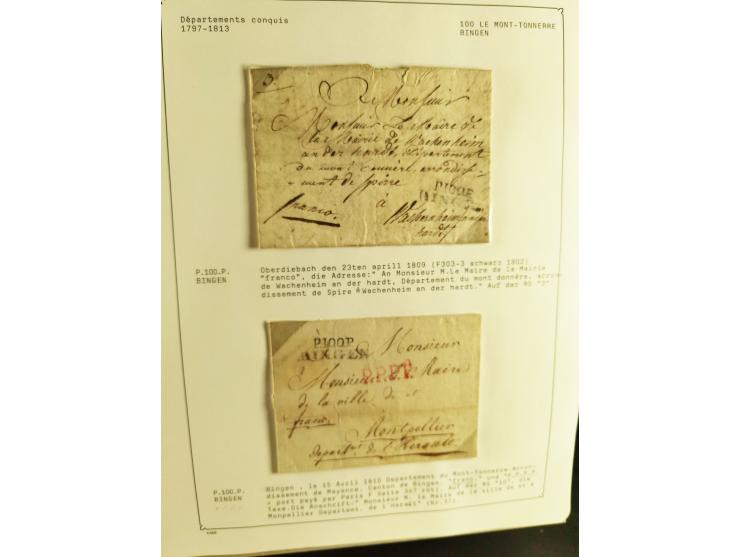 Départements conquis
1797-1813
100 LE MONT-TONNERRE
BINGEN
3.
A Monsieur
Monsieur Le Maire de
la Mairie de Wachenheim
an der hardt, Département
du mont donnère, arrondis-
sement de Spire
à
franco.
Wachenheim an der
hardt
P100P
BINGEN
P.100.P.
BINGEN
Oberdiebach den 23ten aprill 1809 (F303-3 schwarz 1802)
"franco", die Adresse:" An Monsieur M.Le Maire de la Mairie
de Wachenheim an der hardt, Département du mont donnére, arron
dissement de Spire à Wachenheim an der hardt." Auf der RS "3".
P100P
BINGEN
Monsieur
Monsieur Le Maire
de la ville de et
P.P.P.P.
franc.
Montpellier
Departmt. de l'Herault
P.100.P.
BINGEN
Bingen , le 15 Avril 1810 Departement du Mont-Tonnerre-Arron-
dissement de Mayence. Canton de Bingen. "franc." und "P.P.P.P.
= port payé par Paris F Seite 307 rot). Auf der RS "10", die
Taxe.Die Anschrift:" Monsieur M. le Maire de la ville de et à
Monpellier Department. de l'